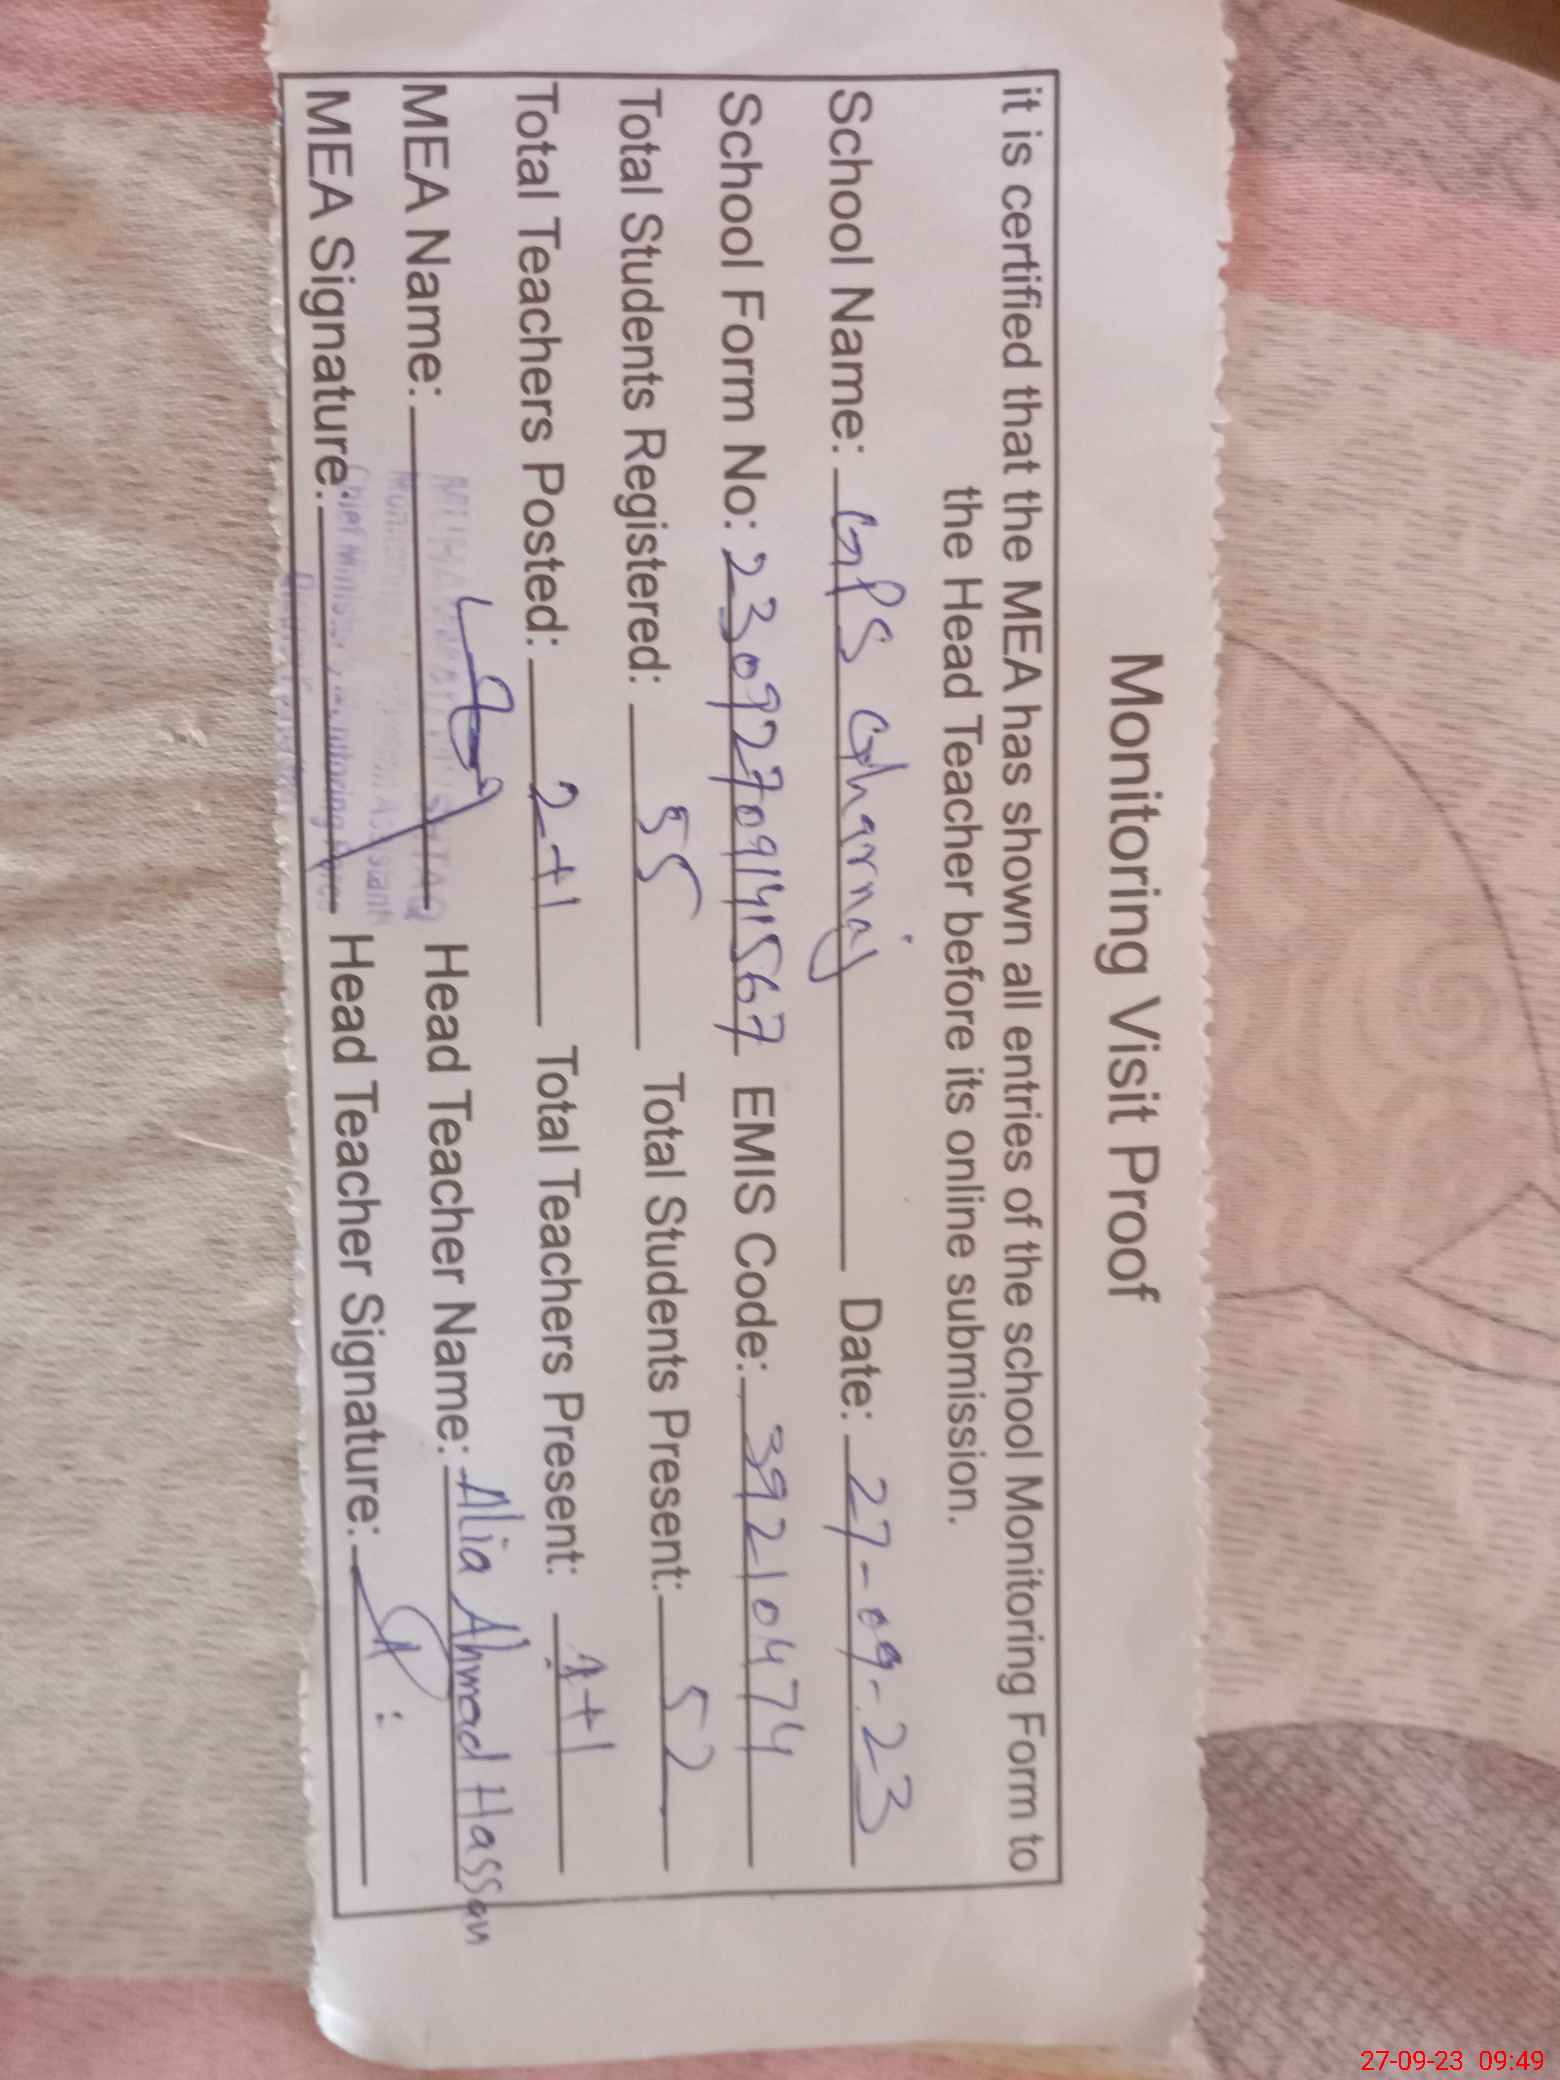 Monitoring Visit Proof
it is certified that the MEA has shown all entries of the school Monitoring Form to
the Head Teacher before its online submission.
School Name: GPS Gharni Date: 27-09-23
School Form No: 23092709141567 EMIS Code: 39210474
Total Students Registered: 55 Total Students Present: 52
Total Teachers Posted: 2+1 Total Teachers Present: 1+1
MEA Name: Head Teacher Name: Alia Ahmad Hassan
MEA Signature: Head Teacher Signature:
27-09-23 09:49